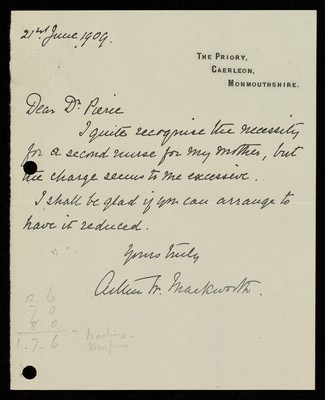 21st June, 1909.
THE PRIORY,
CAERLEON,
MONMOUTHSHIRE.
Dear Dr Pierce
I quite recognise the necessity
for a second nurse for my mother, but
the charge seems to me excessive.
I shall be glad if you can arrange to
have it reduced.
Yours truly
Arthur W. Mackworth.
7 0
8 0
1. 7. 6